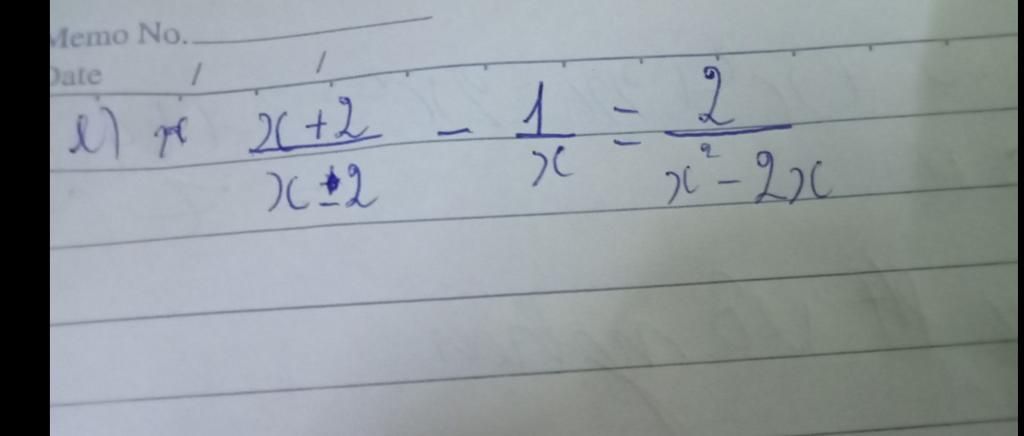 Memo No.
Date / /
l) x x+2/x-2 - 1/x = 2/x²-2x